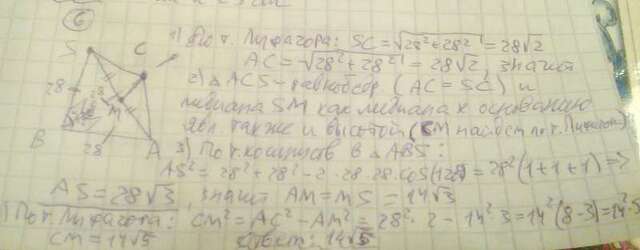 6
1) По т. Пифагора: SC = √28² + 28² = 28√2
AC = √28² + 28² = 28√2, значит
2) △ ACS - равнобед (AC = SC) и
медиана SM как медиана к основанию
явл также и высотой (CM найдем по т. Пифагора)
3) По т. косинусов в △ ABS:
AS² = 28² + 28² - 2 · 28 · 28 · cos(120) = 28² (1 + 1 + 1) =>
AS = 28√3, значит AM = MS = 14√3
) По т. Пифагора: CM² = AC² - AM² = 28² · 2 - 14² · 3 = 14² (8 - 3) = 14² · 5
CM = 14√5 Ответ: 14√5
S
C
28
M
B
28
A